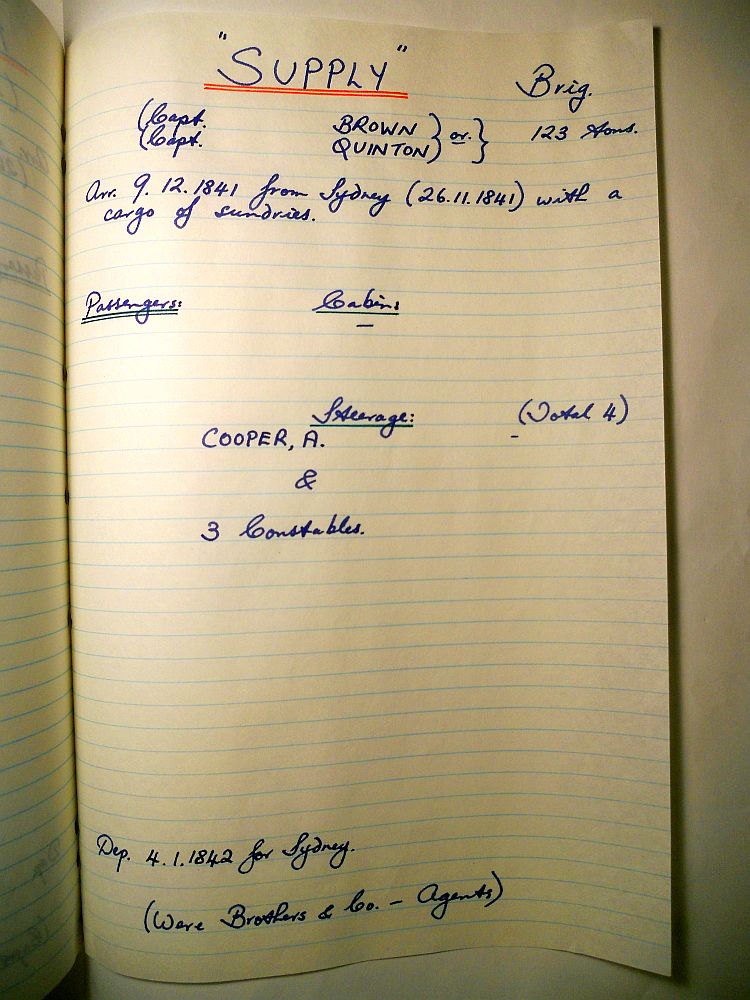 "SUPPLY"
Brig.
(Capt. BROWN } or. } 123 tons.
(Capt. QUINTON }
Arr. 9.12.1841 from Sydney (26.11.1841) with a
cargo of sundries.
Passengers: Cabin:
—
Steerage: (Total 4)
COOPER, A. -
&
3 Constables.
Dep. 4.1.1842 for Sydney.
(Were Brothers & Co. - Agents)